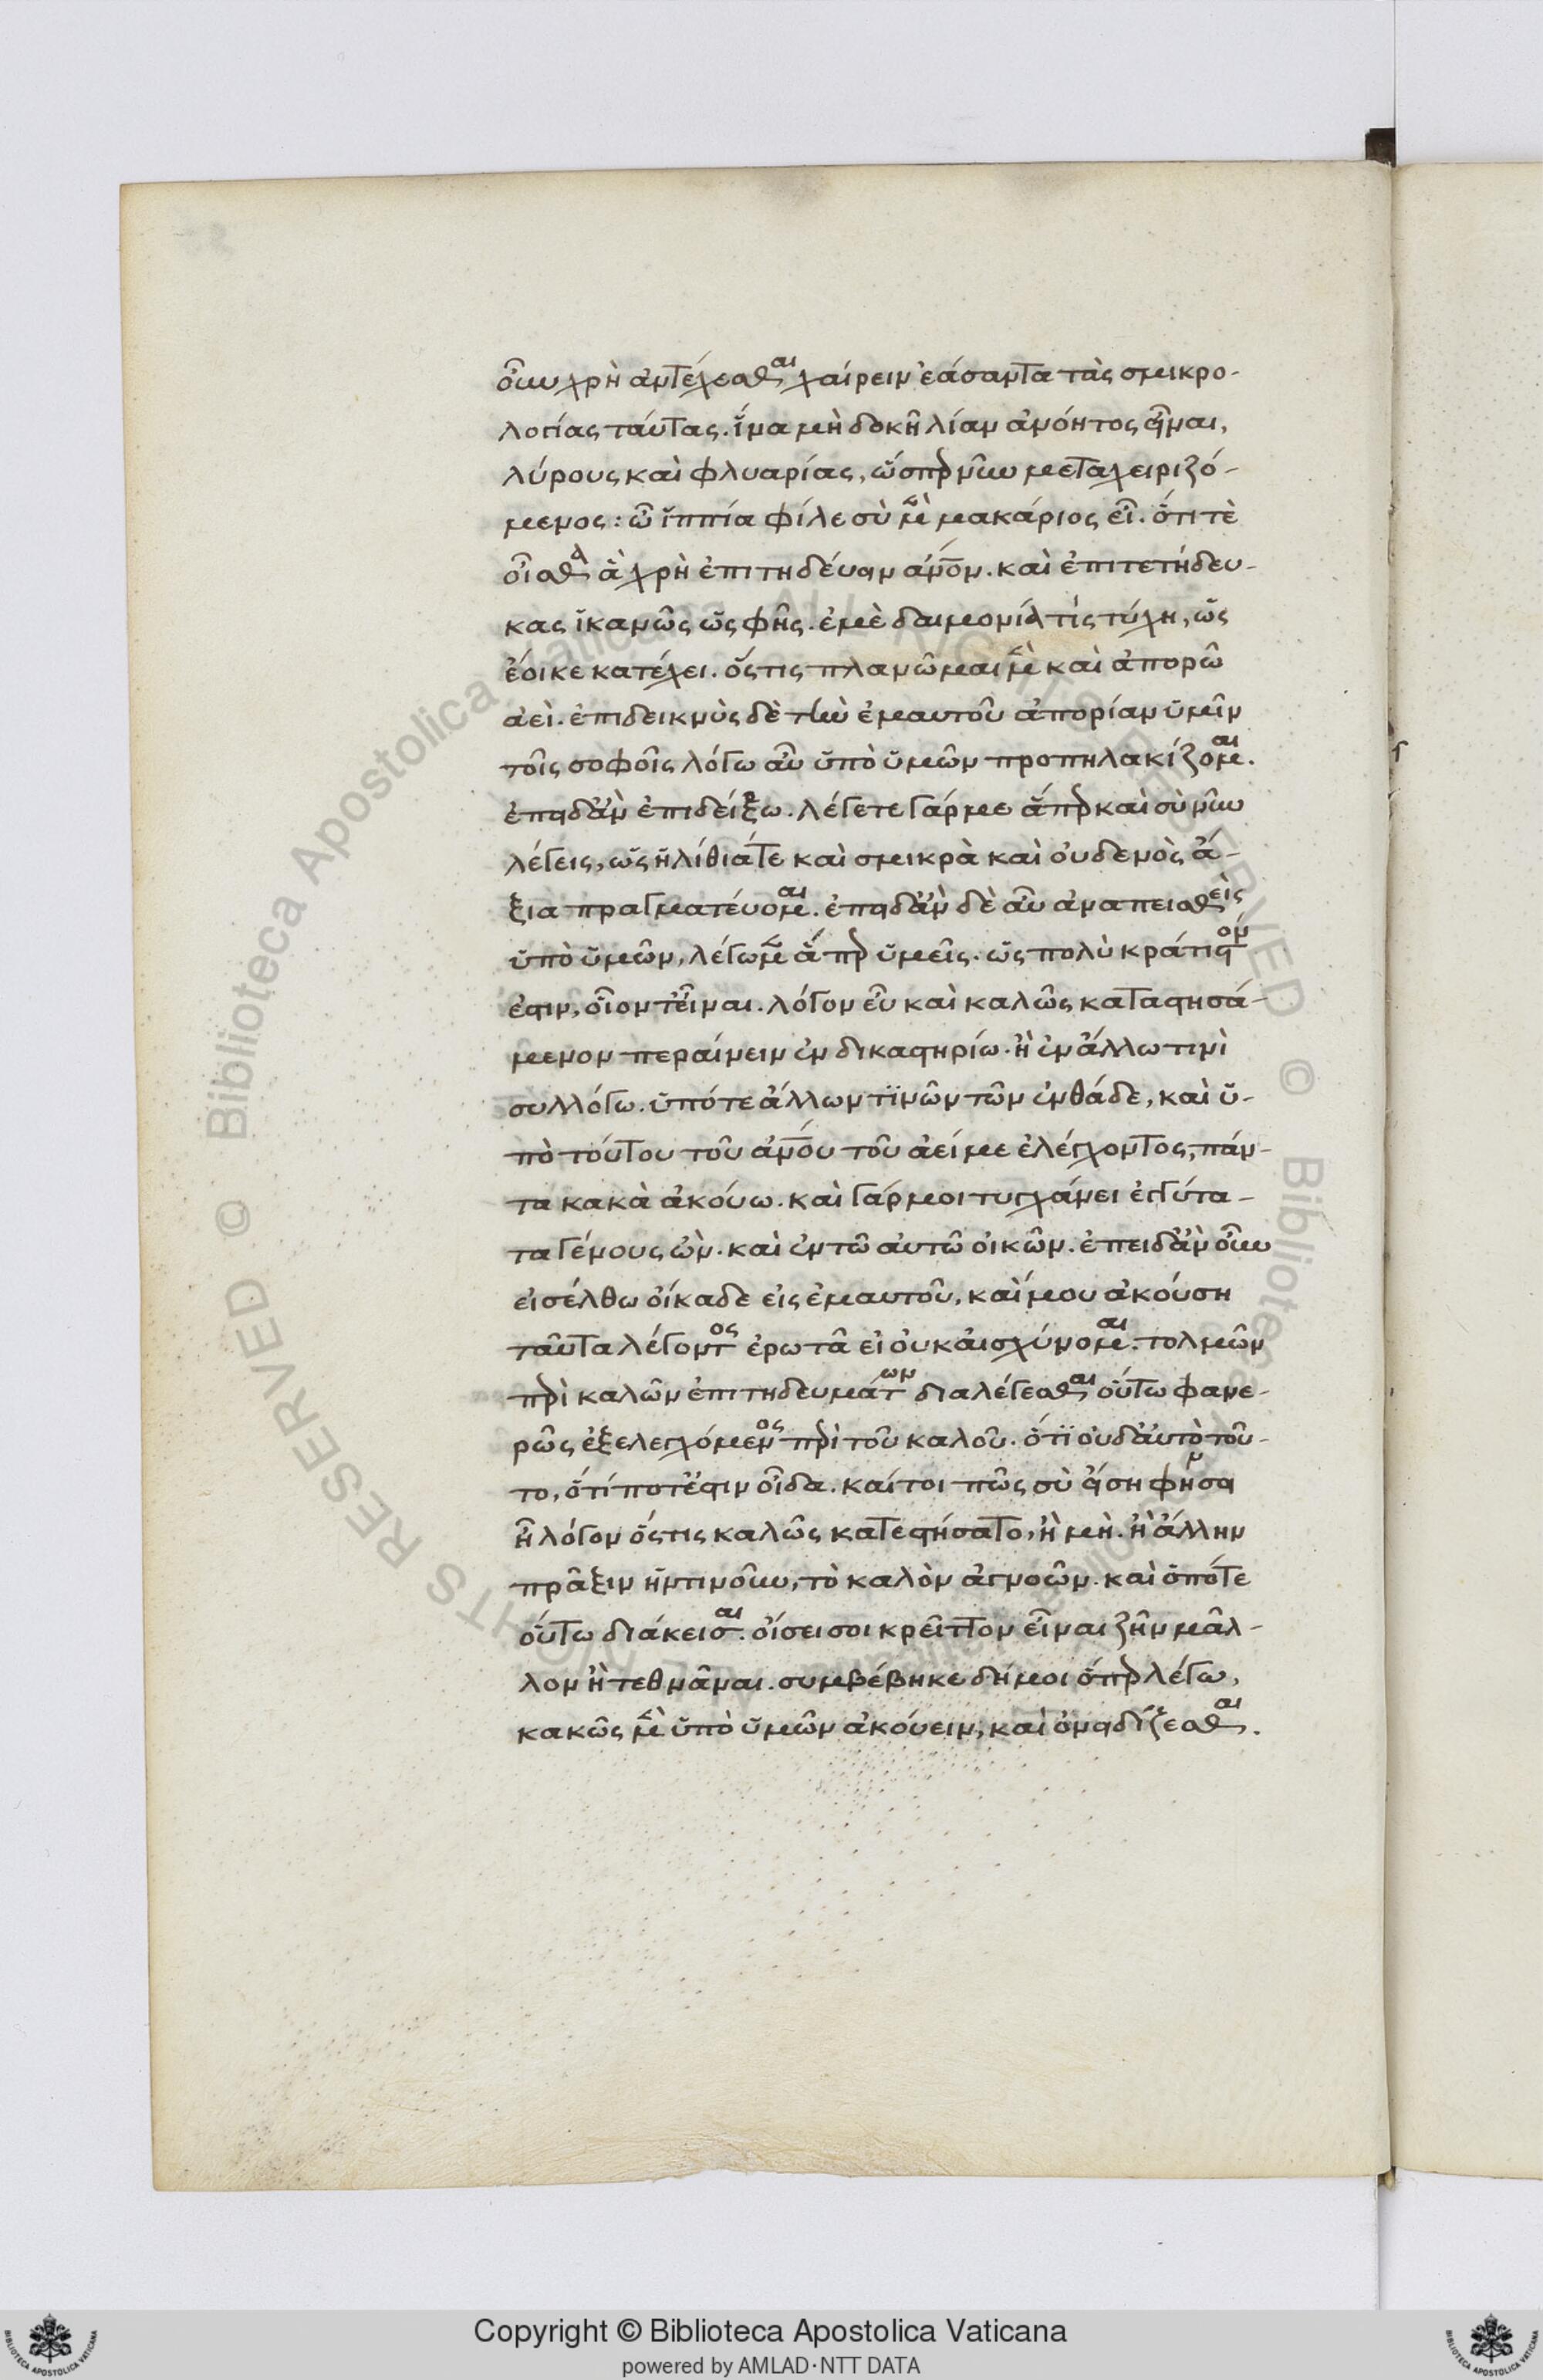 οὖν χρὴ ἀντέχεσθαι χαίρειν ἐάσαντα τὰς σμικρο-
λογίας ταύτας. ἵνα μὴ δοκῆ λίαν ἀνόητος εἶναι,
λύρους καὶ φλυαρίας, ὥσπερ νῦν μεταχειριζό-
μενος: ὦ ἱππία φίλε σὺ μὲν μακάριος εἶ. ὅτι τὲ
οἶσθα ἃ χρὴ ἐπιτηδεύειν ἄνον. καὶ ἐπιτετήδευ-
κας ἱκανῶς ὡς φῆς. ἐμὲ δαιμονία τίς τύχη, ὡς
ἔοικε κατέχει. ὅστις πλανῶμαι μὲν καὶ ἀπορῶ
ἀεὶ. ἐπιδεικνὺς δὲ τὴν ἐμαυτοῦ ἀπορίαν ὑμῖν
τοῖς σοφοῖς λόγω αὖ ὑπὸ ὑμῶν προπηλακίζομαι.
ἐπειδὰν ἐπιδείξω. λέγετε γάρ με ἅπερ καὶ σὺ νῦν
λέγεις, ὡς ἠλίθιά τε καὶ σμικρὰ καὶ οὐδενὸς ἄ-
ξια πραγματεύομαι. ἐπειδὰν δὲ αὖ ἀναπεισθεὶς
ὑπὸ ὑμῶν, λέγω μὲν ἅπερ ὑμεῖς. ὡς πολὺ κράτιστον
ἐστιν, οἷον τ' εἶναι. λόγον εὖ καὶ καλῶς καταστησά-
μενον περαίνειν ἐν δικαστηρίω. ἢ ἐν ἄλλω τινὶ
συλλόγω. ὑπό τε ἄλλων τινῶν τῶν ἐνθάδε, καὶ ὑ-
πὸ τούτου τοῦ ἀνόυ τοῦ ἀεί με ἐλέγχοντος, πάν-
τα κακὰ ἀκούω. καὶ γάρ μοι τυγχάνει ἐγγύτα-
τα γένους ὢν. καὶ ἐν τῶ αὐτῶ οἰκῶν. ἐπειδὰν οὖν
εἰσέλθω οἴκαδε εἰς ἐμαυτοῦ, καί μου ἀκούση
ταῦτα λέγοντος ἐρωτᾶ εἰ οὐκ αἰσχύνομαι. τολμῶν
περὶ καλῶν ἐπιτηδευμάτων διαλέγεσθαι οὕτω φανε-
ρῶς ἐξελεγχόμενος περὶ τοῦ καλοῦ. ὅτι οὐδ' αὐτὸ τοῦ-
το, ὅτί ποτ' ἔστιν οἶδα. καίτοι πῶς σὺ εἴση φησιν
ἢ λόγον ὅστις καλῶς κατεστήσατο, ἢ μὴ. ἢ ἄλλην
πρᾶξιν ἡντινοῦν, τὸ καλὸν ἀγνοῶν. καὶ ὁπότε
οὕτω διάκεισαι. οἴσει σοι κρεῖττον εἶναι ζῆν μᾶλ-
λον ἢ τεθνᾶναι. συμβέβηκε δή μοι ὅπερ λέγω,
κακῶς μὲν ὑπὸ ὑμῶν ἀκούειν, καὶ ὀνειδίζεσθαι.
Copyright © Biblioteca Apostolica Vaticana
powered by AMLAD·NTT DATA